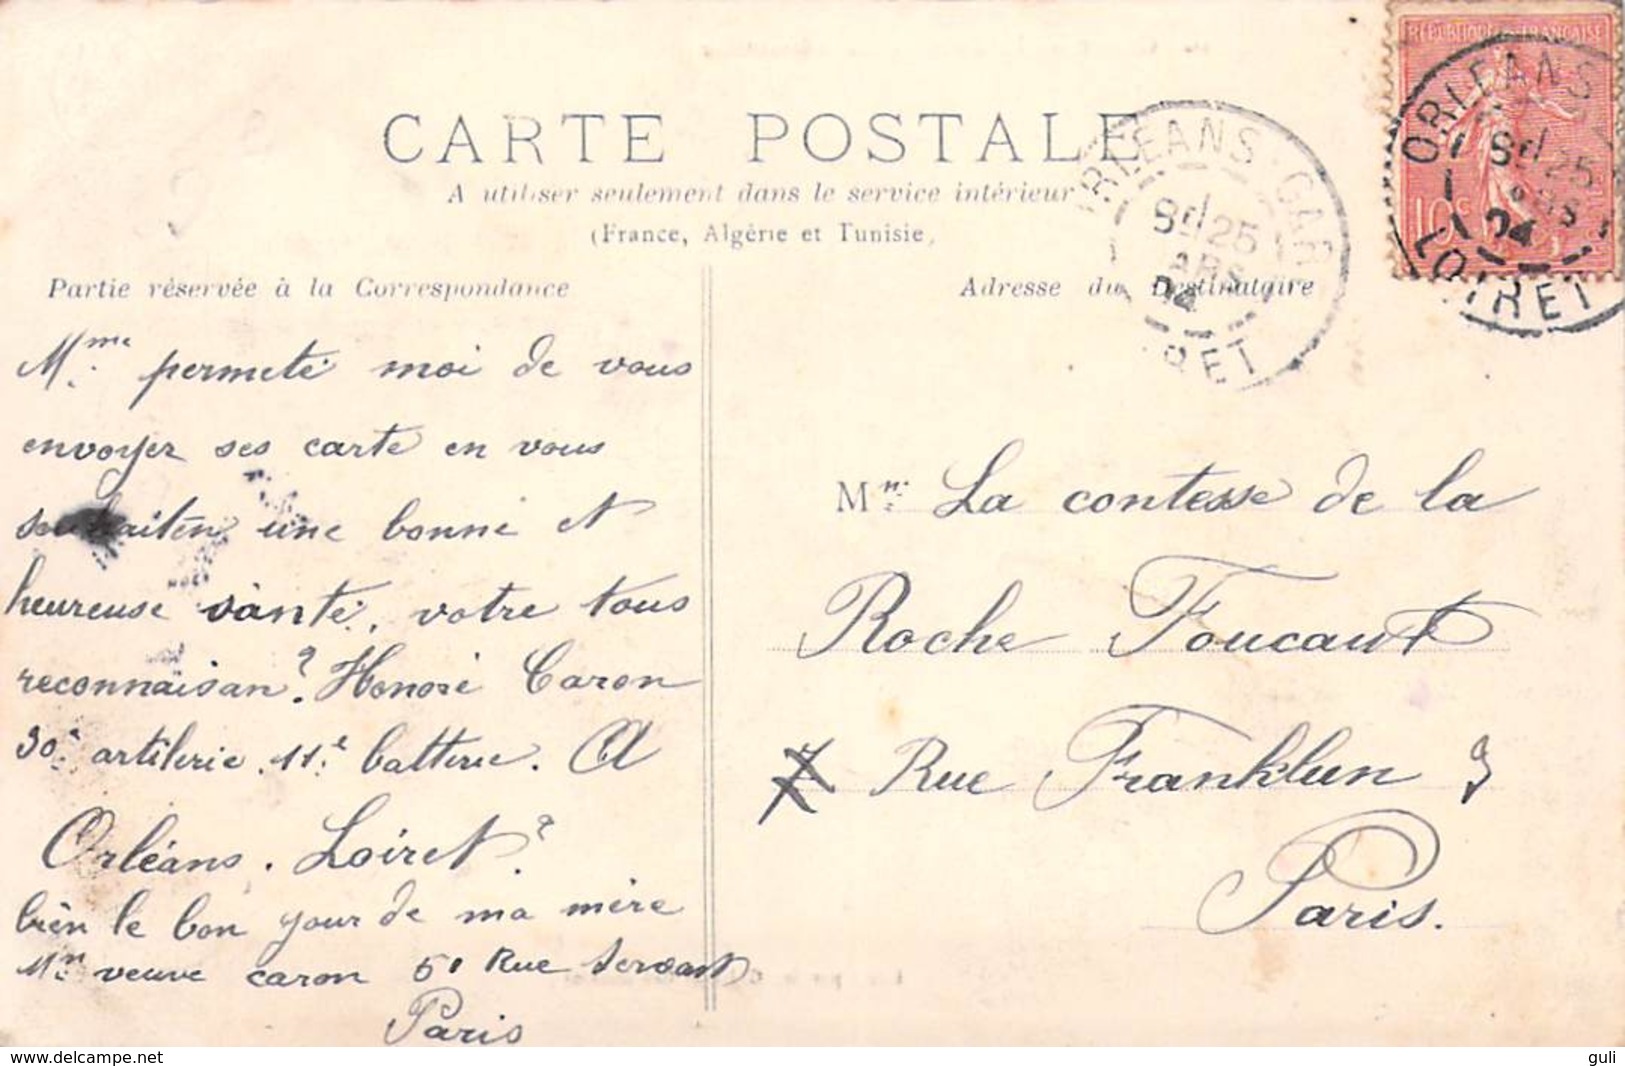 CARTE POSTALE
A utiliser seulement dans le service intérieur
(France, Algérie et Tunisie)
Partie réservée à la Correspondance
Mme permeté moi de vous
envoyer ses carte en vous
souhaiten une bonne et
heureuse santé, votre tous
reconnaisan? Honoré Caron
30e artilerie 11e batterie. A
Orléans. Loiret?
bièn le bon jour de ma mère
Mm veuve caron 51 Rue Servant
Paris
Adresse du Destinataire
M La contesse de la
Roche Foucaut
7 Rue Franklin 9
Paris.
ORLEANS GAR
8E 25
MARS
04
RET
REPUBLIQUE FRANÇAISE
10c
ORLEANS
8E 25
MARS
04
LOIRET
www.delcampe.net
guli